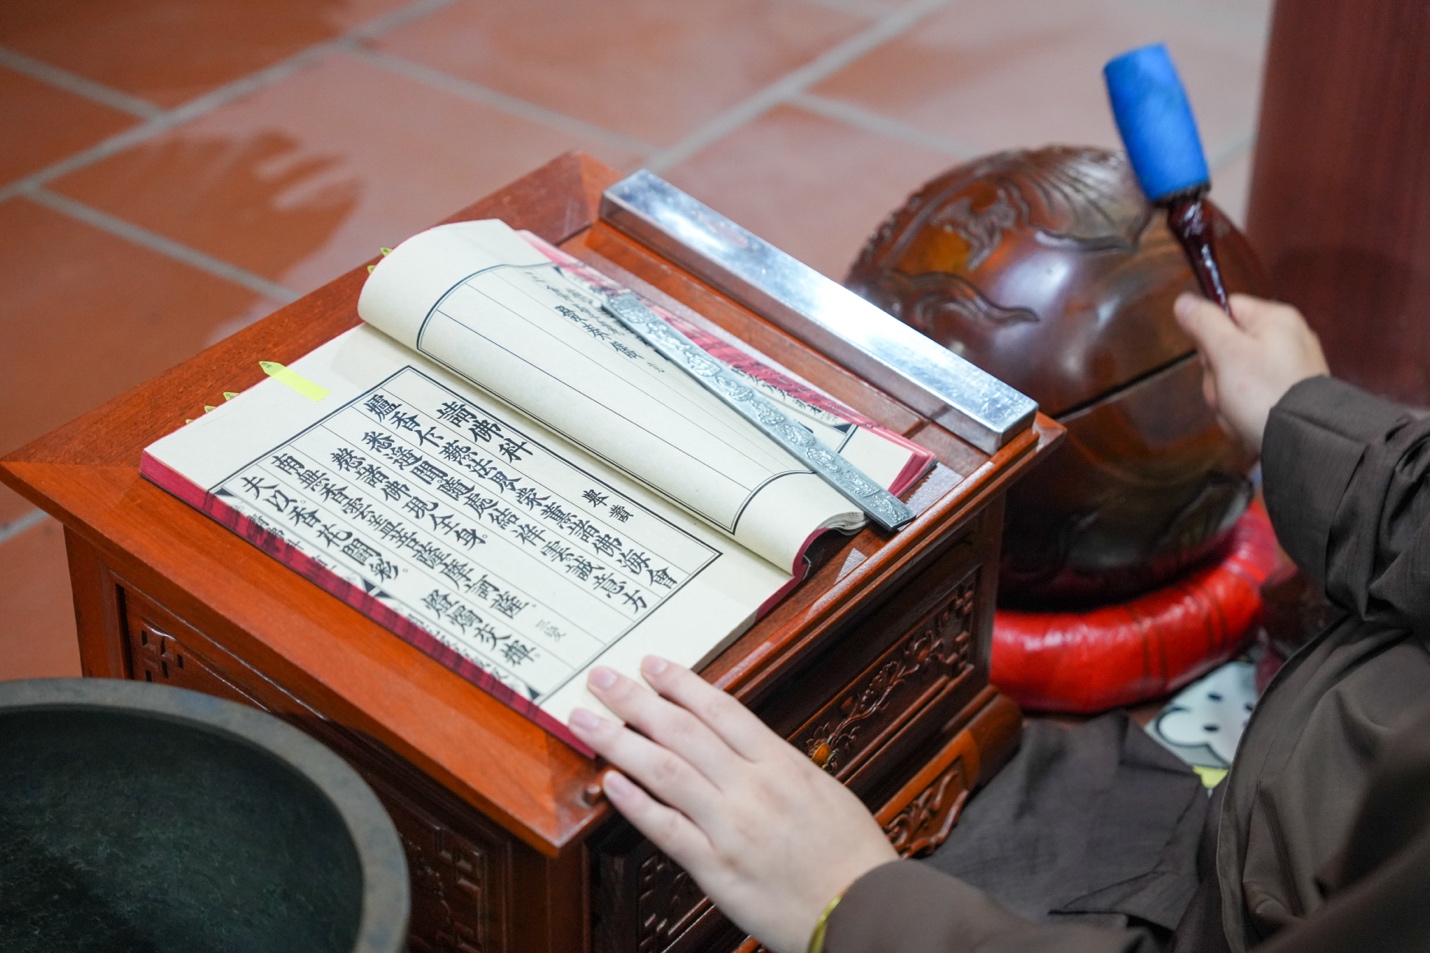 請佛科　舉讚
爐香乍爇法界蒙薰諸佛海會
悉遙聞隨處結祥雲誠意方
慇諸佛現全身。
南無香雲蓋菩薩摩訶薩。
夫以香花開彩。燈燭交輝。